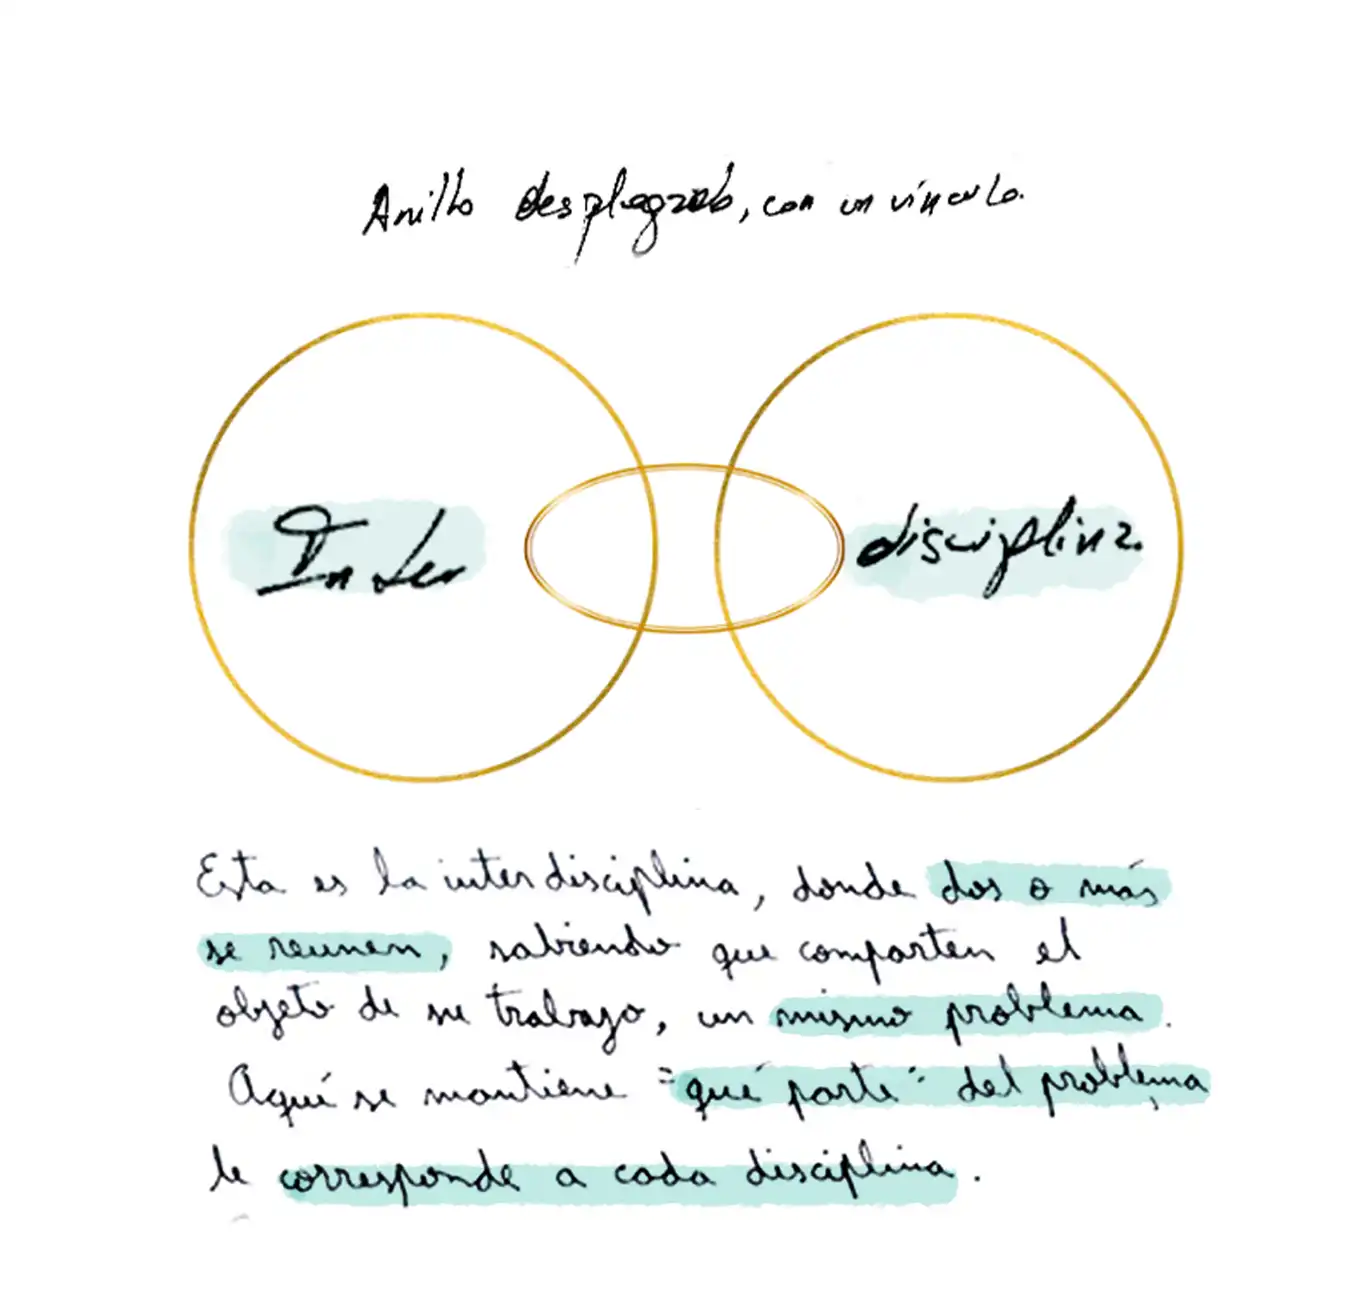 Anillo desplegado, con un vínculo.
Inter disciplina.
Esta es la interdisciplina, donde dos o más
se reunen, sabiendo que comparten el
objeto de su trabajo, un mismo problema.
Aquí se mantiene "qué parte" del problema
le corresponde a cada disciplina.